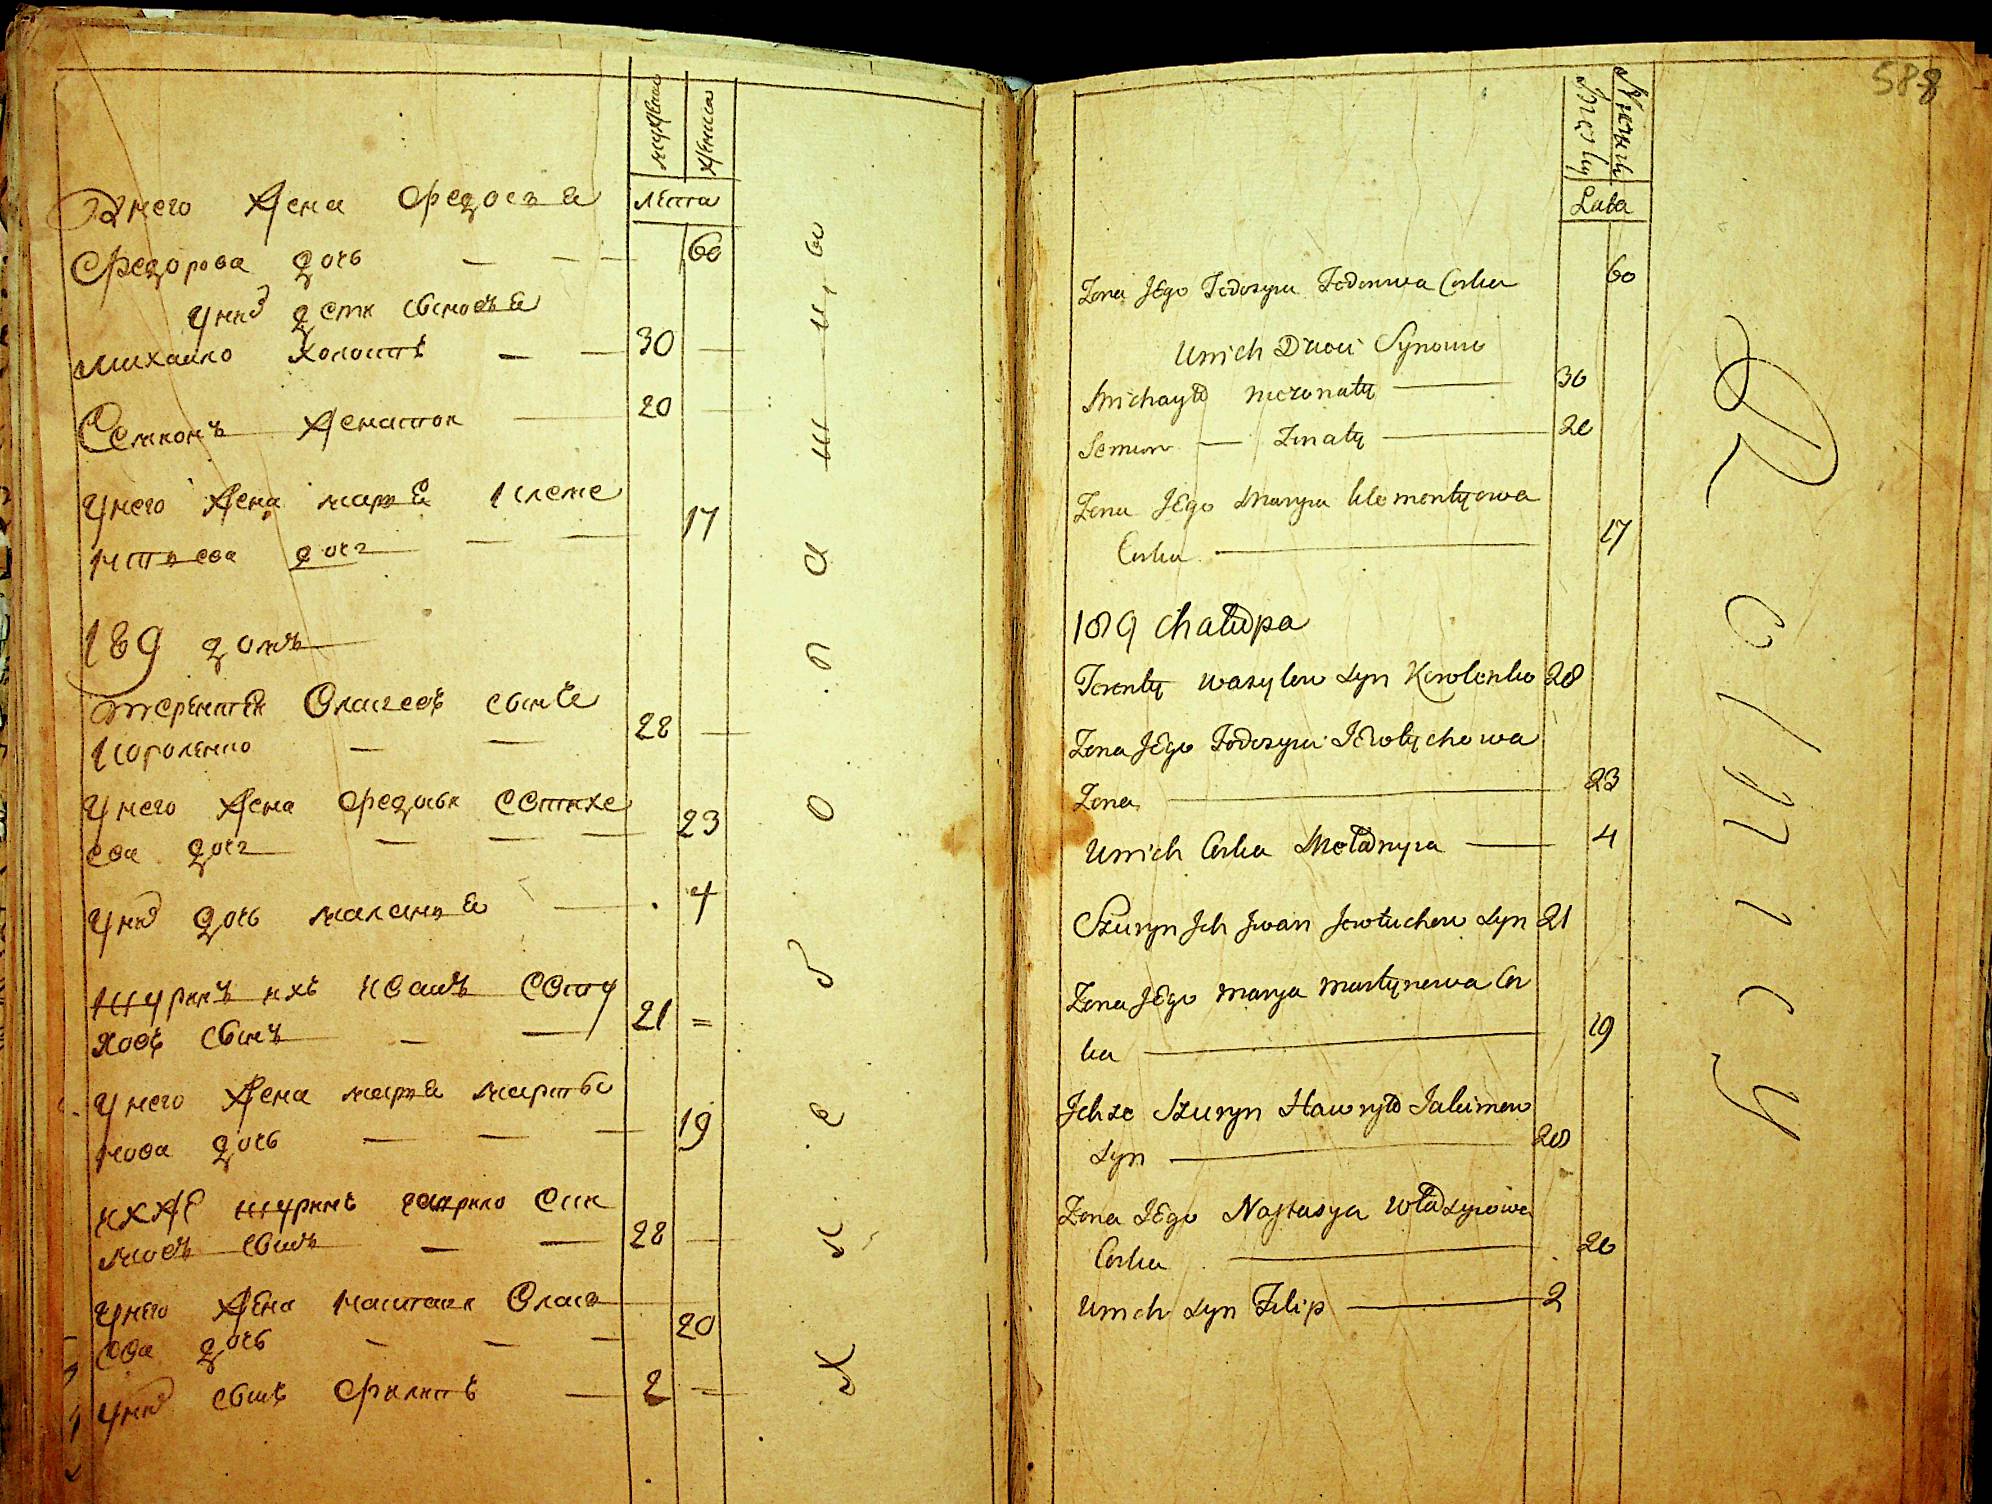 мужеска
женска
лѣта
Унего жена Федосья
Федорова дочь 60
Уних дети сыновья
Михайло холостъ 30
Семионъ женатой 20
Унего жена Марья Клеме
нтьева дочь 17
189 домъ
Терентей Власоеъ сынъ
Короленко 28
Унего жена Федосья Евтихе
ева дочь 23
Уних дочь Маланья 4
Шуринъ ихъ Иванъ Евту
ховъ сынъ 21
Унего жена Марья Марты
нова дочь 19
Ихже шуринъ Гаврило Еки
мовъ сынъ 28
Унего жена Настасья Власо
ва дочь 20
Уних сынъ Филипъ 2
Хлебопашцы
588
Męzka
Żenska
Lata
Zona JEgo Fedosyia Fedorowa Corka 60
Unich Dwoi Synowie
Michayło nieżonaty 30
Semion Żonaty 20
Zona JEgo Marya Klementyowa
Corka 17
189 Chałupa
Terenty Wasylow Syn Korolenko 28
Zona JEgo Fedosya JEwtychowa
Zona 23
Unich Corka Mełanya 4
Szuryn Ich Jwan Jewtuchow Syn 21
Zona JEgo Marya Martynowa Cor
ka 19
Jchze Szuryn Hawryło Jakimow
Syn 28
Zona JEgo Nastasya Własowa
Corka 20
Unich Syn Filip 2
Rolnicy